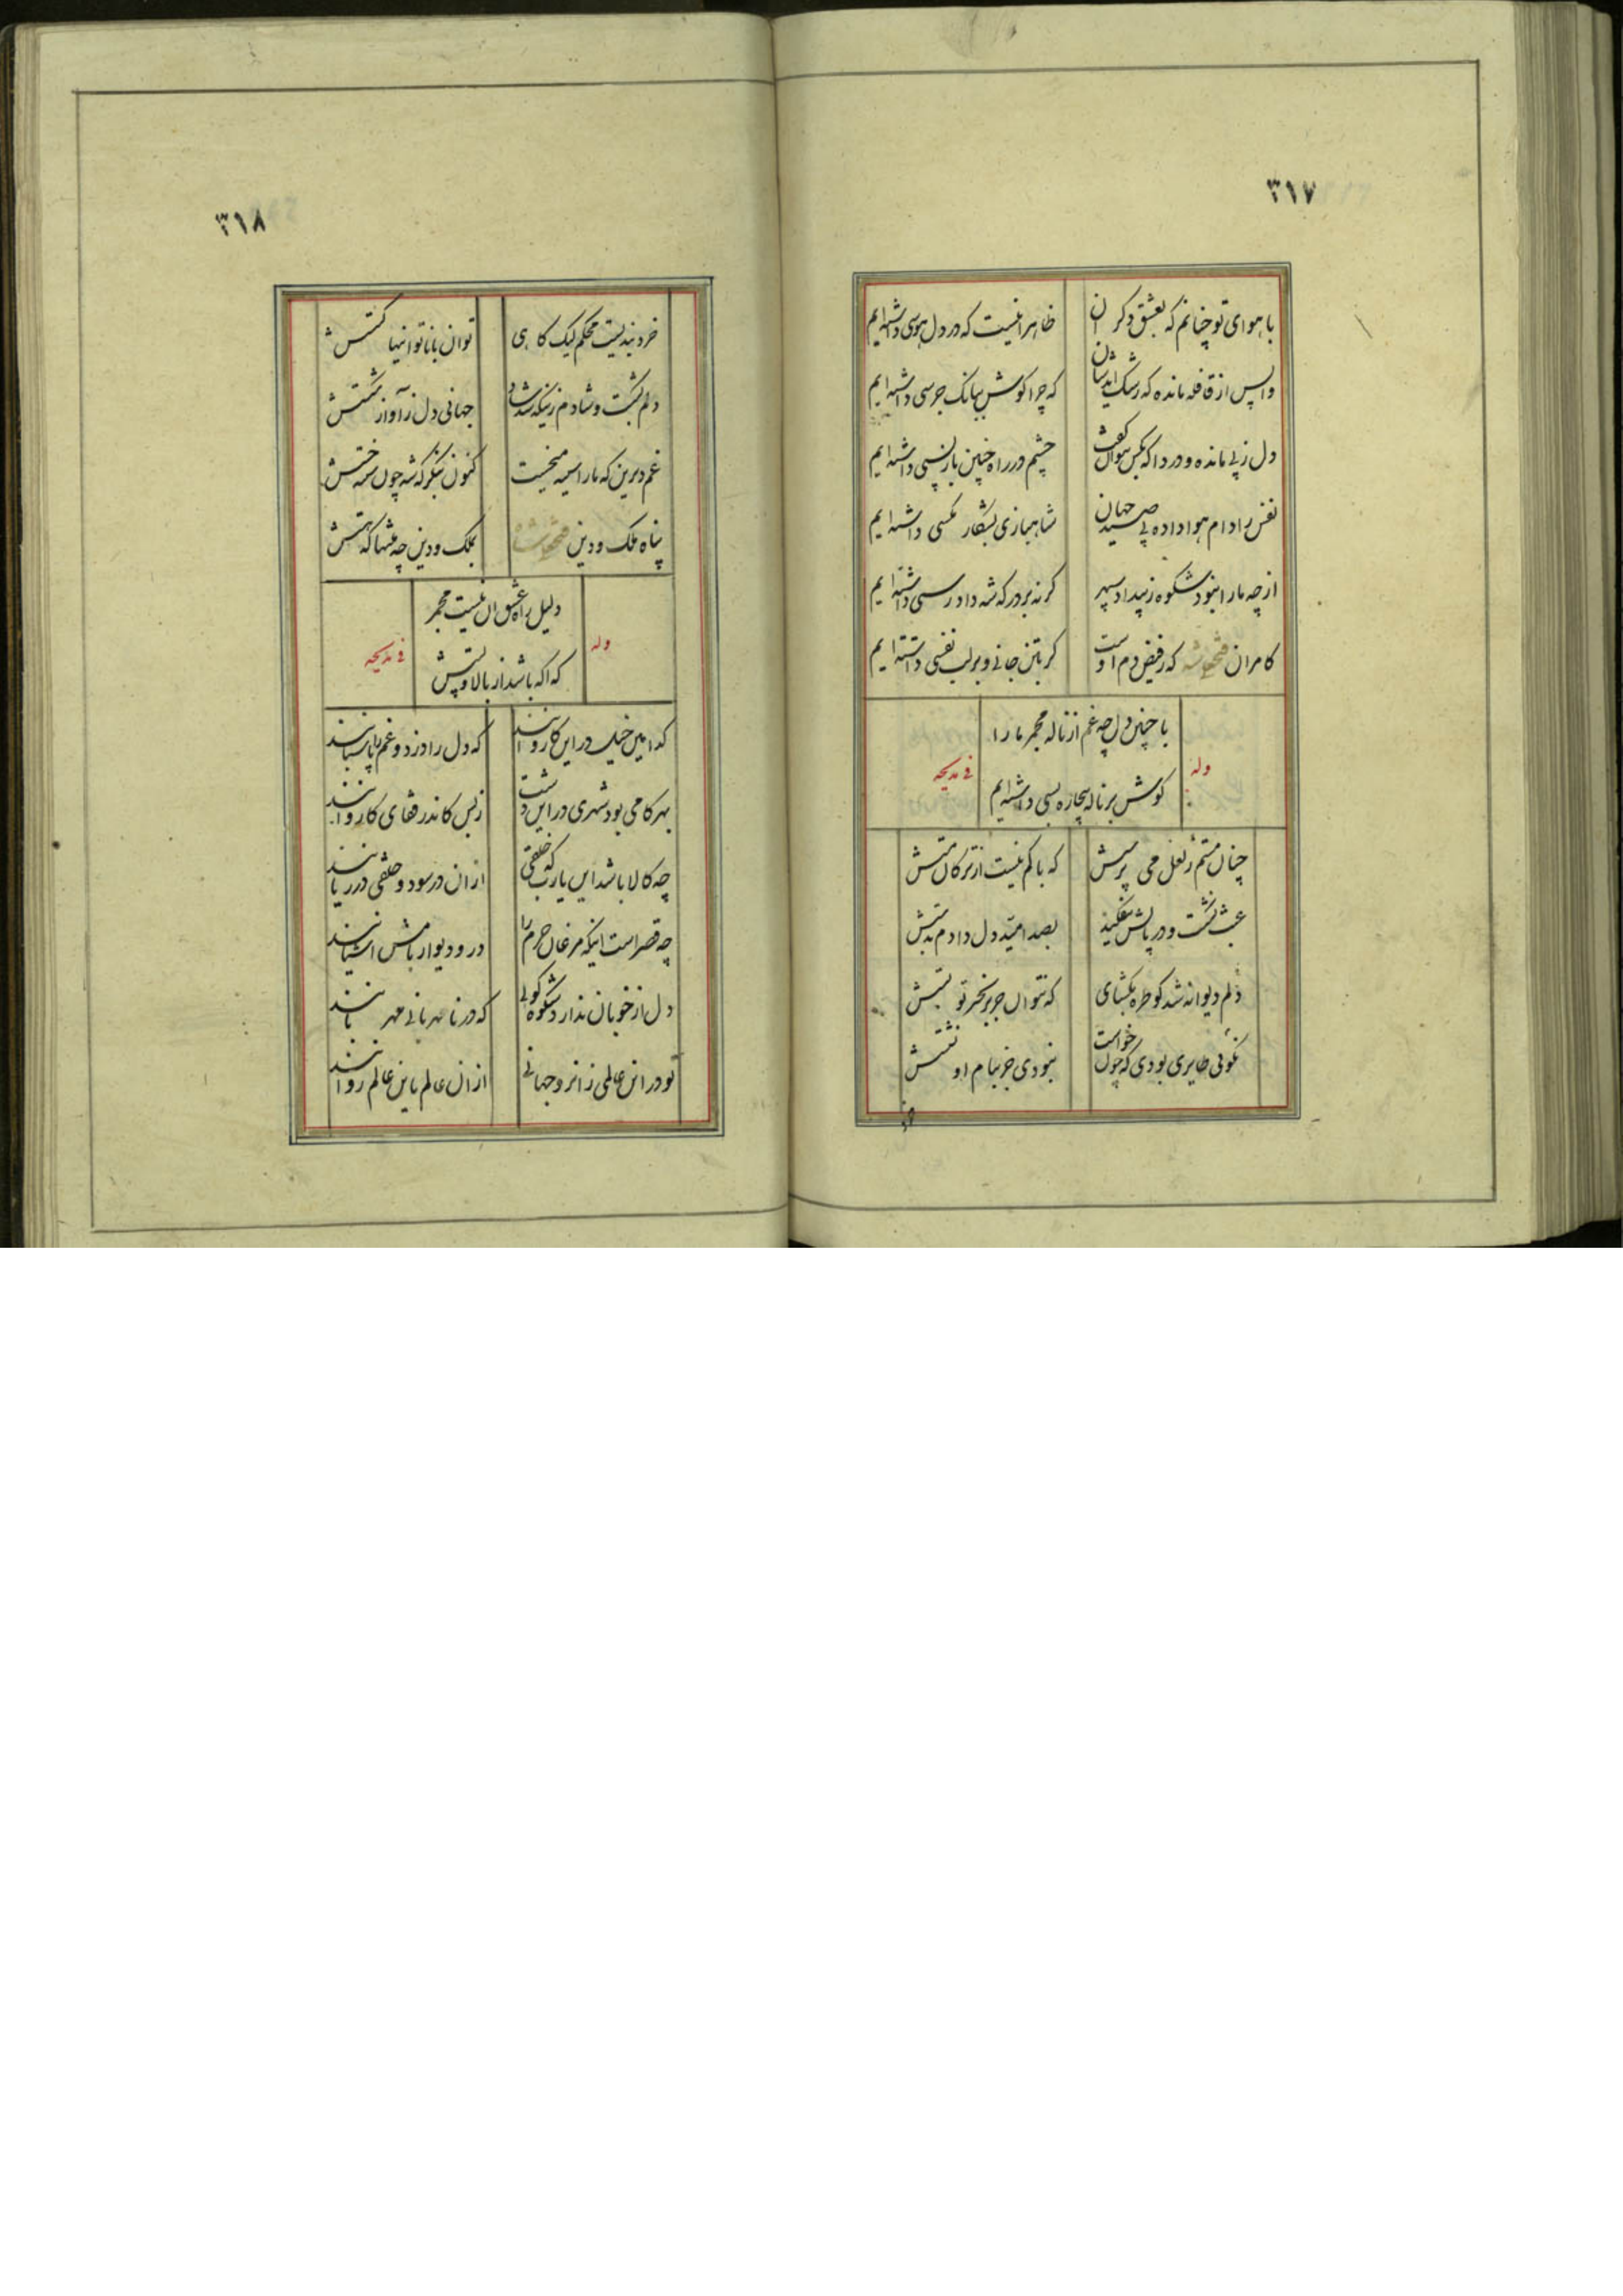 ۳۱۷
با هوای تو چنانم که بعشق دگران
ظاهرا نیست که در دل هوسی داشته‌ایم
واپس از قافله مانده که رشک ایدشان
که چرا گوش ببانک جرسی داشته‌ایم
دل ز پی مانده و دردا که بکس نتوان گفت
چشم در راه چنین بازپسی داشته‌ایم
نفس را دام هوا داده پی صید جهان
شاهبازی بشکار مگسی داشته‌ایم
از چه ما را نبود شکوه ز بیداد سپهر
گرنه بر درگه شه دادرسی داشته‌ایم
کامران فتحعلیشه که ز فیض دم اوست
گر بتن جانی و بر لب نفسی داشته‌ایم
با چنین دل چه غم از ناله مجمر ما را
وله
کوش بر ناله بیچاره بسی داشته‌ایم
فی مدیحه
چنان مستم ز لعل می پرستش
که باکم نیست از ترکان مستش
عبث نشکست و در پایش نیفکند
بصد امید دل دادم بدستش
دلم دیوانه شد کو طره بکشای
که نتوان جز بزنجیر تو بستش
نکوئی طایری بودی که چون خواست
نبودی جز ببام او نشستش
۳۱۸
خرد بندیست محکم لیک گاهی
توان با ناتوانیها گسستش
دلم بشکست و شادم زینکه شد شاد
جهانی دل ز آواز شکستش
غم دیرین که ما را سینه میخست
کنون بنگر که شه چون سینه خستش
پناه ملک و دین فتحعلیشاه
بملک و دین چه منتها که هستش
دلیل راه عشق ان نیست مجمر
وله
که اگه باشد از بالا و پستش
فی مدیحه
کدامین خیل در این کاروانند
که دل را دزد و غم را پاسبانند
بهر کامی بود شهری در این دشت
ز بس کاندر قفای کاروانند
چه کالا باشد این یارب که خلقی
ازان در سود و خلقی در زیانند
چه قصر است اینکه مرغان حرم را
در و دیوار بامش اشیانند
دل از خوبان ندارد شکوه گوئی
که در نامهربانی مهربانند
تو در این عالمی زانرو جهانی
ازان عالم باین عالم روانند